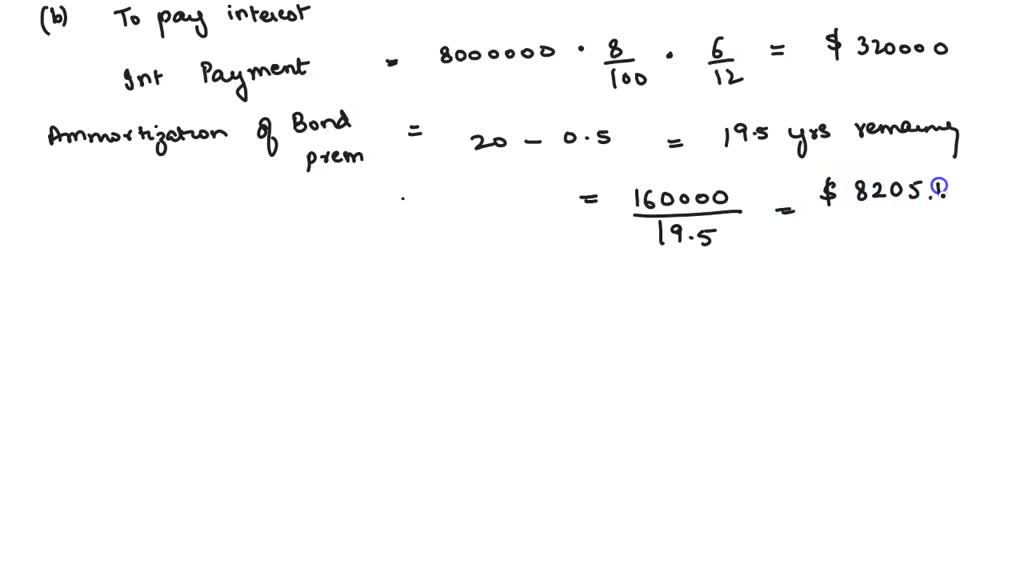 (b) To pay interest
Int Payment = 8000000 · 8/100 · 6/12 = $ 320000
Ammortization of Bond prem = 20 - 0.5 = 19.5 yrs remaining
= 160000/19.5 = $ 8205.